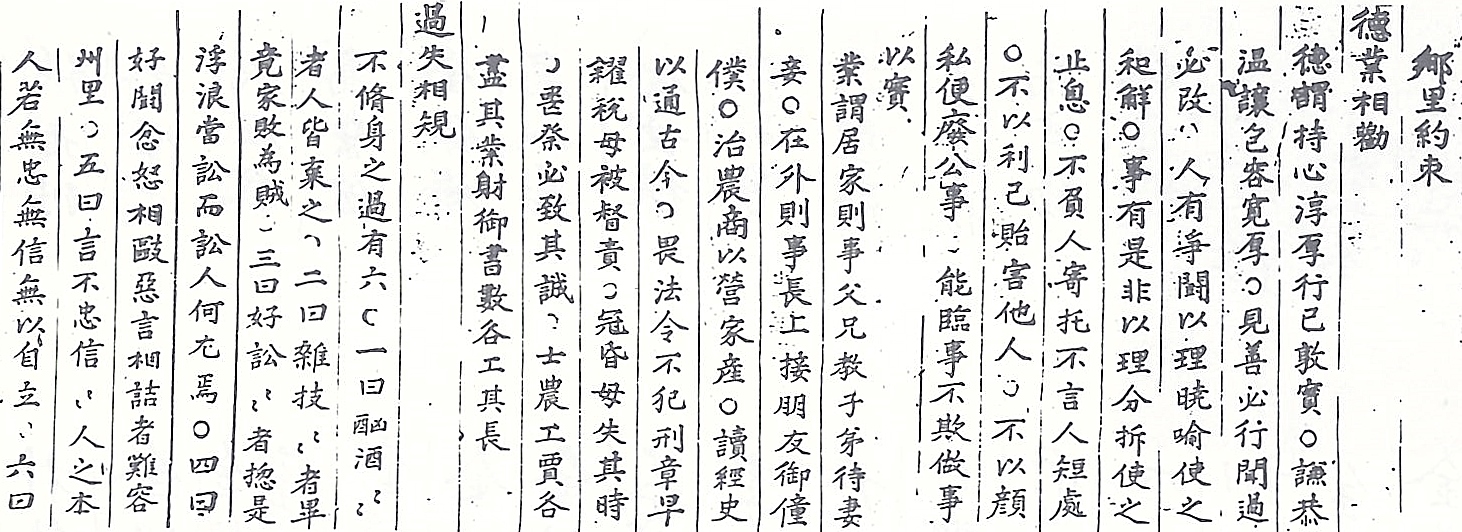 鄉里約束
德業相勸
德謂持心淳厚行己敦實○謙恭
温讓包容寬厚○見善必行聞過
必改ヽ人有爭鬪以理曉喻使之
和解○事有是非以理分拆使之
止息○不負人寄托不言人短處
○不以利己貽害他人○不以顔
私便廢公事ヽ能臨事不欺做事
以實
業謂居家則事父兄教子弟待妻
妾○在外則事長上接朋友御僮
僕○治農商以營家産○讀經史
以通古今○畏法令不犯刑章早
糶稅毋被督責○冠昏毋失其時
ヽ喪祭必致其誠ヽ士農工賈各
盡其業射御書數各工其長
過失相規
不脩身之過有六○一曰酗酒〻
者人皆棄之ヽ二曰雜技〻者畢
竟家敗為賊ヽ三曰好訟〻者揔是
浮浪當訟而訟人何尤焉○四曰
好鬪念怒相敺惡言相詰者難容
州里ヽ五曰言不忠信〻人之本
人若無忠無信無以自立ヽ六曰